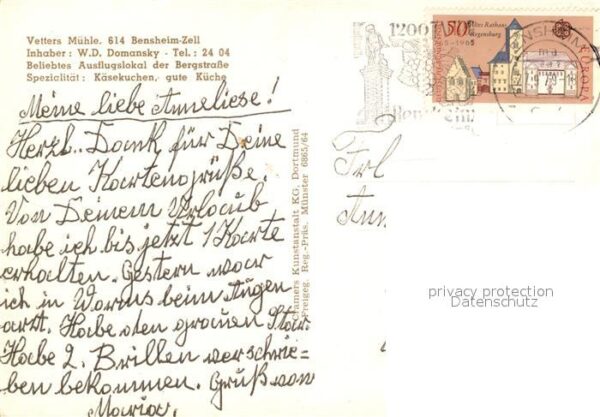 Vetters Mühle. 614 Bensheim-Zell
Inhaber: W.D. Domansky - Tel.: 24 04
Beliebtes Ausflugslokal der Bergstraße
Spezialität: Käsekuchen, gute Küche
Meine liebe Anneliese!
Herzl. Dank für Deine
lieben Kartengrüße.
Von Deinem Urlaub
habe ich bis jetzt 1 Karte
erhalten. Gestern war
ich in Worms beim Augen
arzt. Habe den grauen Star.
Habe 2. Brillen verschrie=
ben bekommen. Gruß von
Maria.
Cramers Kunstanstalt KG, Dortmund
Freigeg. Reg.-Präs. Münster 6865/64
1200
765-1965
Bensheim
50
Altes Rathaus
Regensburg
EUROPA
BENSHEIM
Frl
Ann
privacy protection
Datenschutz